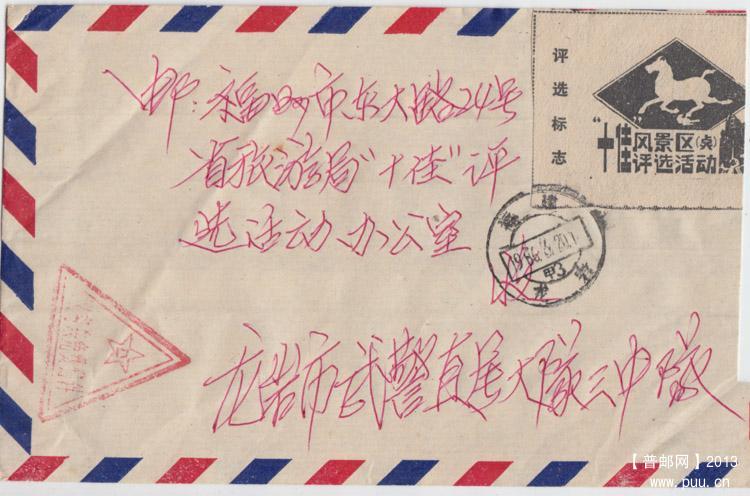 邮：福州市东大路24号
省旅游局“十佳”评
选活动办公室
收
龙岩市武警直属大队三中队
评选标志
“十佳风景区(点)
评选活动
福建
1986.3.20.
甲3
【普邮网】2013
www.puu.cn